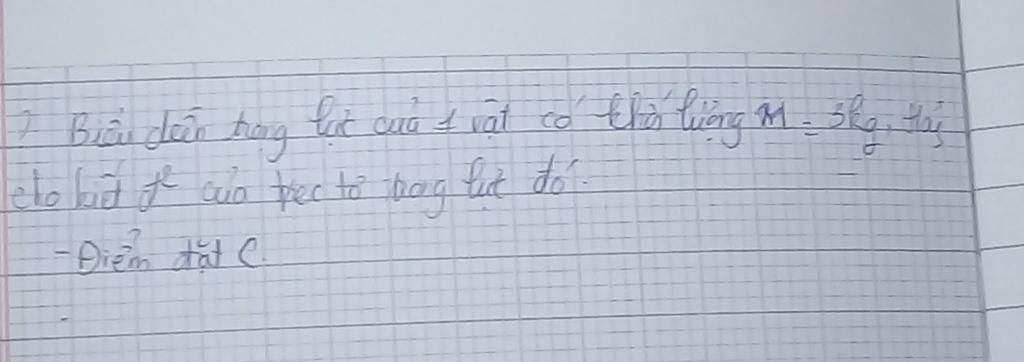 ? Biểu diễn trọng lực của 1 vật có khối lượng M = 3kg, Hãy
cho biết đ² của vec tơ trọng lực đó.
- Điểm đặt C.
-